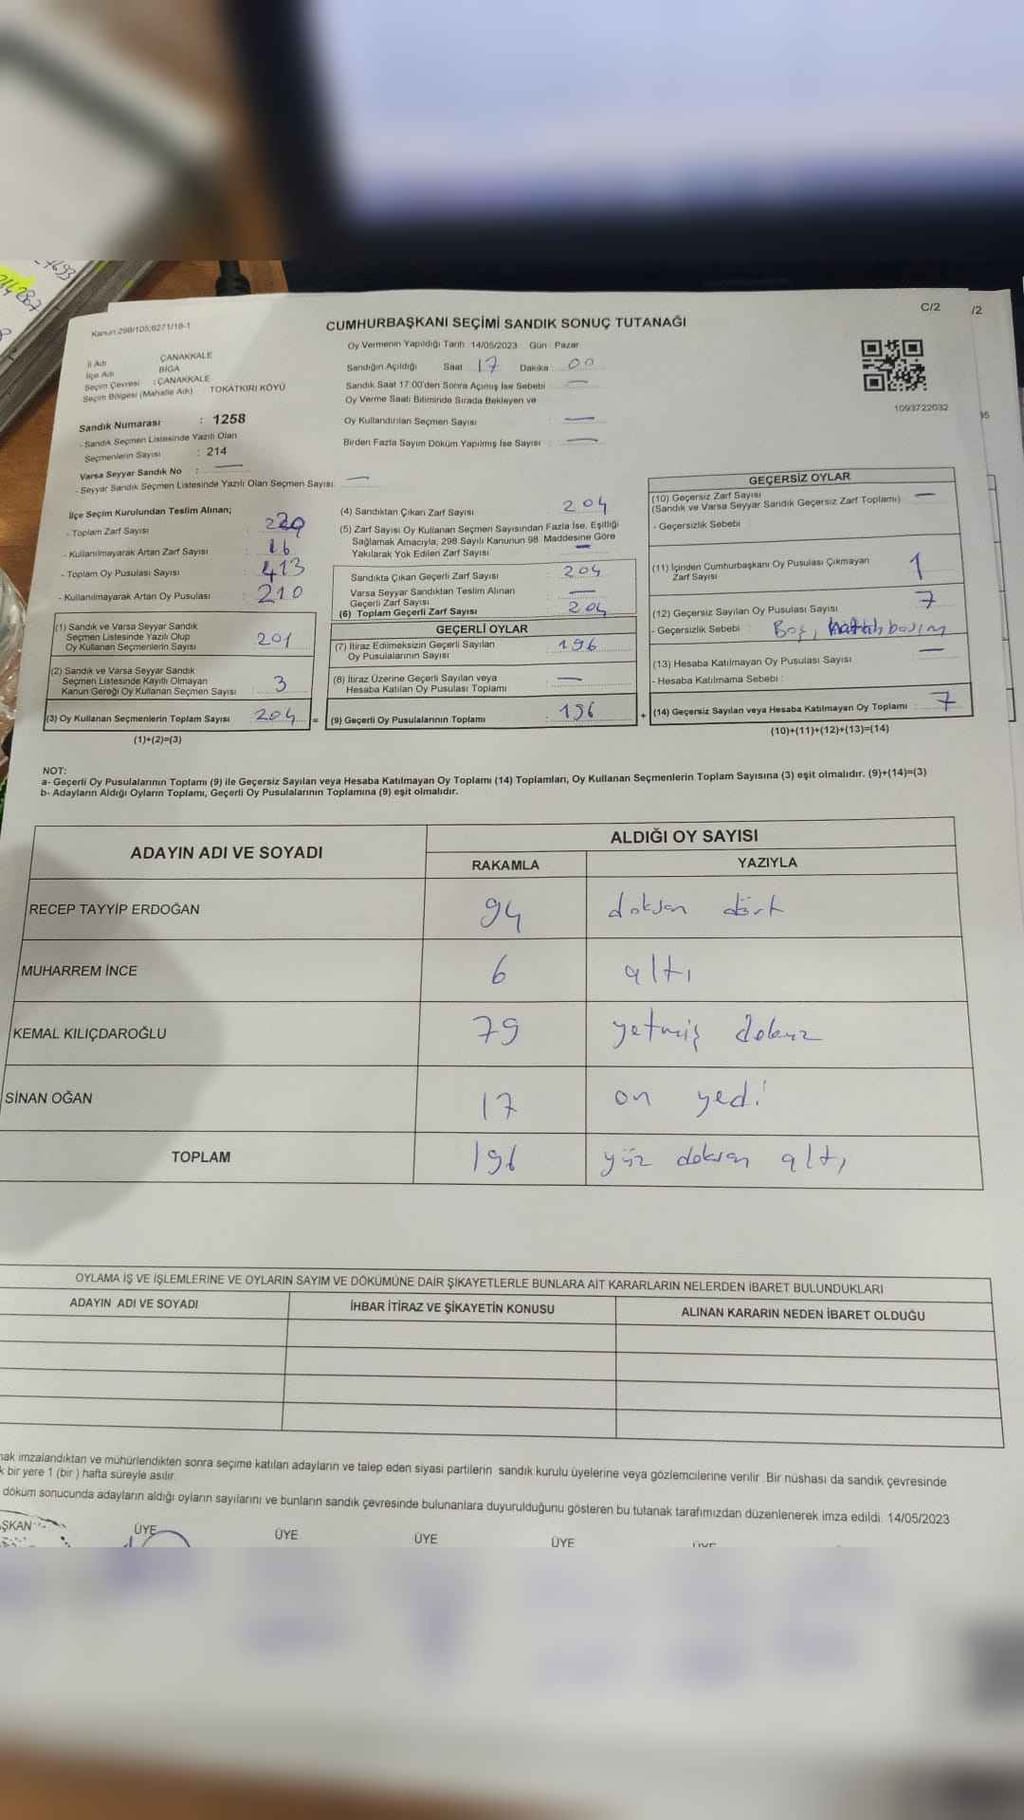 C/2
/2
Kanun:298/105;6271/18-1
CUMHURBAŞKANI SEÇİMİ SANDIK SONUÇ TUTANAĞI
İl Adı ÇANAKKALE
İlçe Adı BİGA
Seçim Çevresi : ÇANAKKALE
Seçim Bölgesi (Mahalle Adı) TOKATKIRI KÖYÜ
Oy Vermenin Yapıldığı Tarih 14/05/2023 Gün : Pazar
Sandığın Açıldığı Saat 17 Dakika : 00
Sandık Saat 17:00'den Sonra Açılmış İse Sebebi —
Oy Verme Saati Bitiminde Sırada Bekleyen ve
Oy Kullandırılan Seçmen Sayısı —
Birden Fazla Sayım Döküm Yapılmış İse Sayısı : —
1093722032
Sandık Numarası : 1258
- Sandık Seçmen Listesinde Yazılı Olan
Seçmenlerin Sayısı : 214
Varsa Seyyar Sandık No : —
- Seyyar Sandık Seçmen Listesinde Yazılı Olan Seçmen Sayısı —
İlçe Seçim Kurulundan Teslim Alınan;
- Toplam Zarf Sayısı : 220
- Kullanılmayarak Artan Zarf Sayısı : 16
- Toplam Oy Pusulası Sayısı : 413
- Kullanılmayarak Artan Oy Pusulası : 210
(1) Sandık ve Varsa Seyyar Sandık
Seçmen Listesinde Yazılı Olup
Oy Kullanan Seçmenlerin Sayısı 201
(2) Sandık ve Varsa Seyyar Sandık
Seçmen Listesinde Kayıtlı Olmayan
Kanun Gereği Oy Kullanan Seçmen Sayısı 3
(3) Oy Kullanan Seçmenlerin Toplam Sayısı 204 =
(1)+(2)=(3)
(4) Sandıktan Çıkan Zarf Sayısı : 204
(5) Zarf Sayısı Oy Kullanan Seçmen Sayısından Fazla İse, Eşitliği
Sağlamak Amacıyla, 298 Sayılı Kanunun 98. Maddesine Göre
Yakılarak Yok Edilen Zarf Sayısı —
Sandıkta Çıkan Geçerli Zarf Sayısı : 204
Varsa Seyyar Sandıktan Teslim Alınan
Geçerli Zarf Sayısı —
(6) Toplam Geçerli Zarf Sayısı : 204
GEÇERLİ OYLAR
(7) İtiraz Edilmeksizin Geçerli Sayılan
Oy Pusulalarının Sayısı : 196
(8) İtiraz Üzerine Geçerli Sayılan veya
Hesaba Katılan Oy Pusulası Toplamı : —
(9) Geçerli Oy Pusulalarının Toplamı : 196 +
GEÇERSİZ OYLAR
(10) Geçersiz Zarf Sayısı
(Sandık ve Varsa Seyyar Sandık Geçersiz Zarf Toplamı) —
- Geçersizlik Sebebi
(11) İçinden Cumhurbaşkanı Oy Pusulası Çıkmayan
Zarf Sayısı 1
(12) Geçersiz Sayılan Oy Pusulası Sayısı 7
- Geçersizlik Sebebi : Boş, hatalı basım
(13) Hesaba Katılmayan Oy Pusulası Sayısı —
- Hesaba Katılmama Sebebi :
(14) Geçersiz Sayılan veya Hesaba Katılmayan Oy Toplamı : 7
(10)+(11)+(12)+(13)=(14)
NOT:
a- Geçerli Oy Pusulalarının Toplamı (9) ile Geçersiz Sayılan veya Hesaba Katılmayan Oy Toplamı (14) Toplamları, Oy Kullanan Seçmenlerin Toplam Sayısına (3) eşit olmalıdır. (9)+(14)=(3)
b- Adayların Aldığı Oyların Toplamı, Geçerli Oy Pusulalarının Toplamına (9) eşit olmalıdır.
ADAYIN ADI VE SOYADI
ALDIĞI OY SAYISI
RAKAMLA YAZIYLA
RECEP TAYYİP ERDOĞAN 94 doksan dört
MUHARREM İNCE 6 altı
KEMAL KILIÇDAROĞLU 79 yetmiş dokuz
SİNAN OĞAN 17 on yedi
TOPLAM 196 yüz doksan altı
OYLAMA İŞ VE İŞLEMLERİNE VE OYLARIN SAYIM VE DÖKÜMÜNE DAİR ŞİKAYETLERLE BUNLARA AİT KARARLARIN NELERDEN İBARET BULUNDUKLARI
ADAYIN ADI VE SOYADI İHBAR İTİRAZ VE ŞİKAYETİN KONUSU ALINAN KARARIN NEDEN İBARET OLDUĞU
nak imzalandıktan ve mühürlendikten sonra seçime katılan adayların ve talep eden siyasi partilerin sandık kurulu üyelerine veya gözlemcilerine verilir. Bir nüshası da sandık çevresinde
k bir yere 1 (bir) hafta süreyle asılır.
döküm sonucunda adayların aldığı oyların sayılarını ve bunların sandık çevresinde bulunanlara duyurulduğunu gösteren bu tutanak tarafımızdan düzenlenerek imza edildi. 14/05/2023
AŞKAN ÜYE ÜYE ÜYE ÜYE